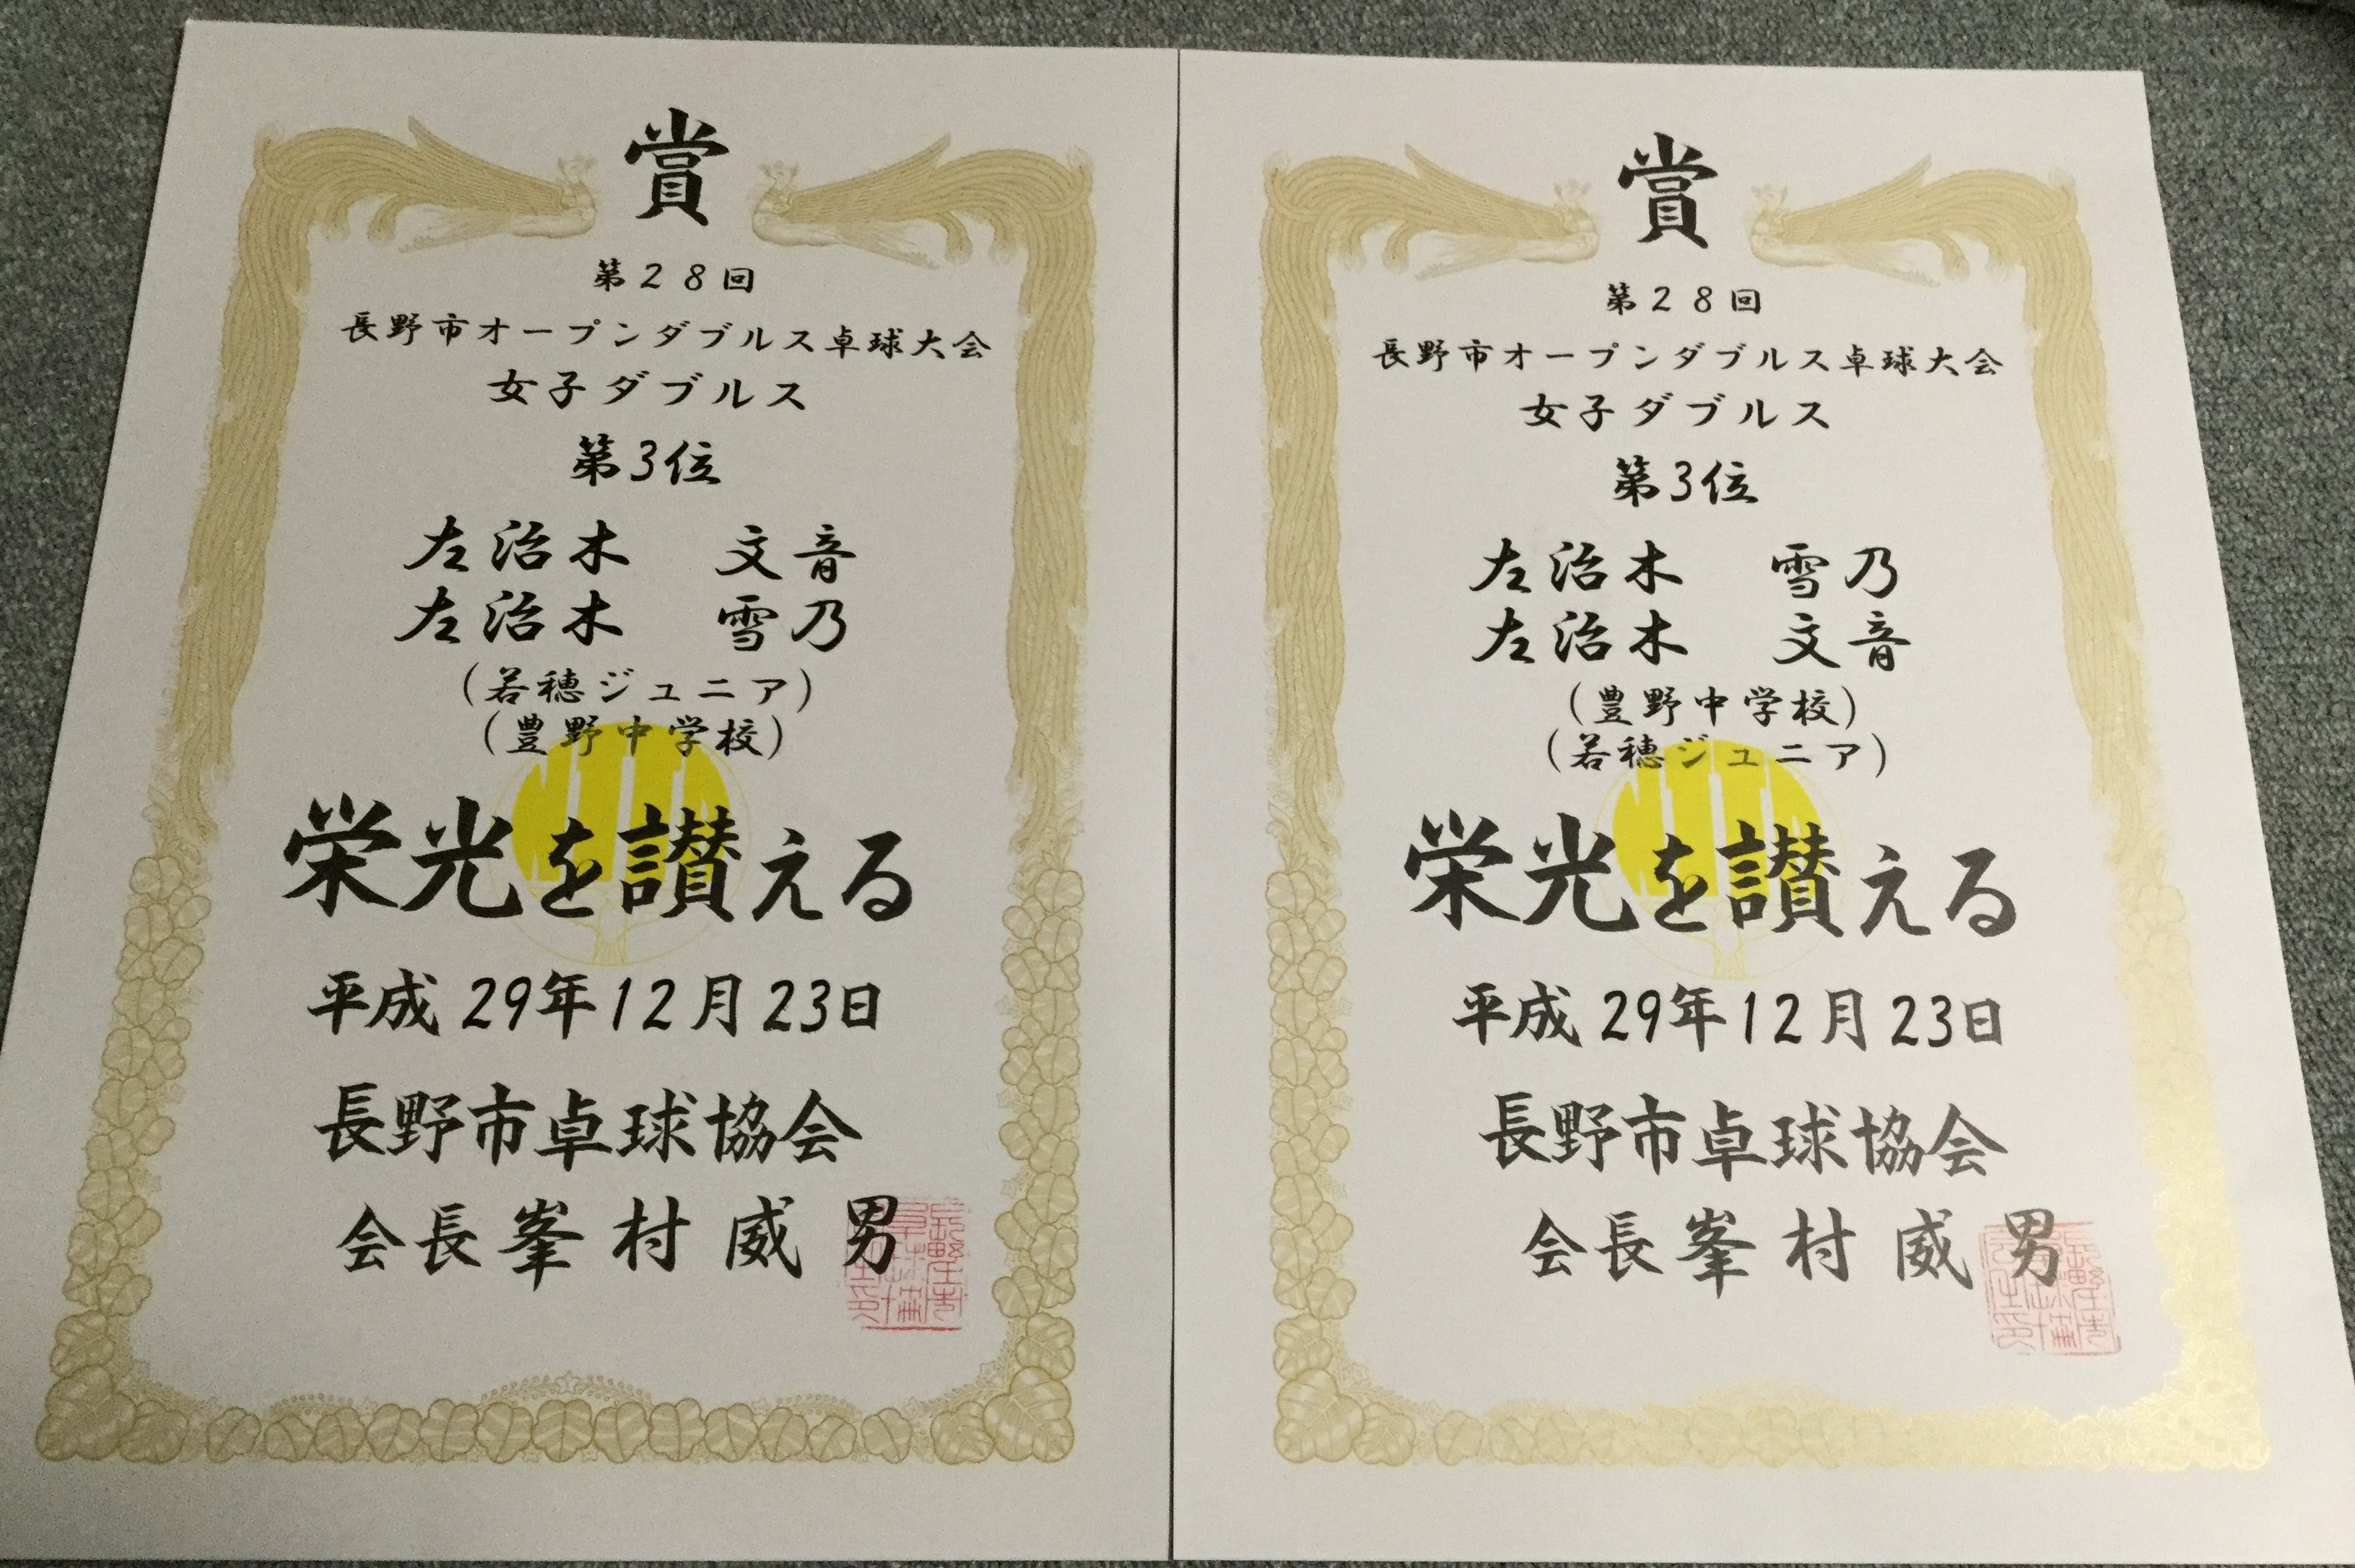 賞
第28回
長野市オープンダブルス卓球大会
女子ダブルス
第3位
左治木 文音
左治木 雪乃
(若穂ジュニア)
(豊野中学校)
栄光を讃える
平成29年12月23日
長野市卓球協会
会長峯村威男
賞
第28回
長野市オープンダブルス卓球大会
女子ダブルス
第3位
左治木 雪乃
左治木 文音
(豊野中学校)
(若穂ジュニア)
栄光を讃える
平成29年12月23日
長野市卓球協会
会長峯村威男